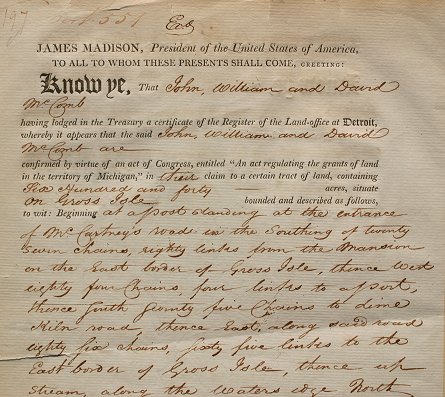 197
557
JAMES MADISON, President of the United States of America,
TO ALL TO WHOM THESE PRESENTS SHALL COME, GREETING:
Know ye, That John, William and David
McComb
having lodged in the Treasury a certificate of the Register of the Land-office at Detroit,
whereby it appears that the said John, William and David
McComb are
confirmed by virtue of an act of Congress, entitled "An act regulating the grants of land
in the territory of Michigan," in their claim to a certain tract of land, containing
Six Hundred and forty acres, situate
on Gross Isle bounded and described as follows,
to wit: Beginning at a post standing at the entrance
of McCartney's road in the Southing of twenty
seven chains, eighty links from the Mansion
on the East border of Gross Isle, thence West
eighty four Chains, four links to a post,
thence South seventy five Chains to
Kiln road, thence East, along said road
eighty six chains, sixty five links to the
East border of Gross Isle, thence up
Stream, along the Waters edge North